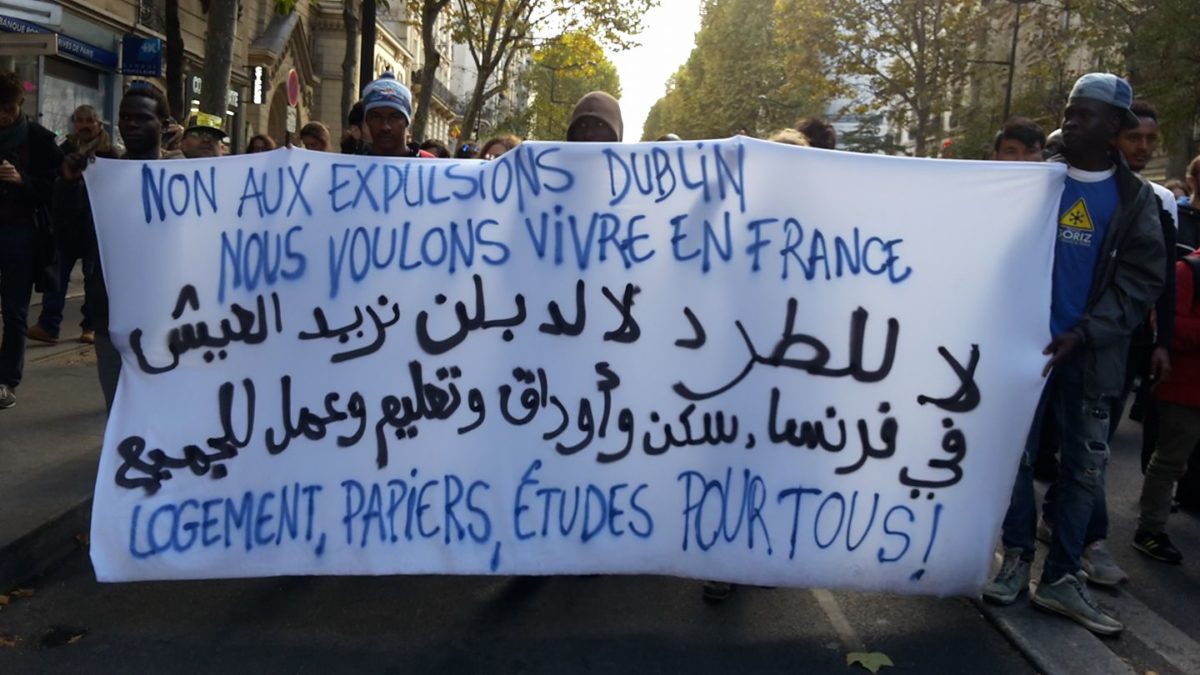 NON AUX EXPULSIONS DUBLIN
NOUS VOULONS VIVRE EN FRANCE
لا للطرد لا لدبلن نريد العيش
في فرنسا، سكن وأوراق وتعليم وعمل للجميع
LOGEMENT, PAPIERS, ÉTUDES POUR TOUS!
BANQUE
RIVES DE PARIS
GÖRIZ